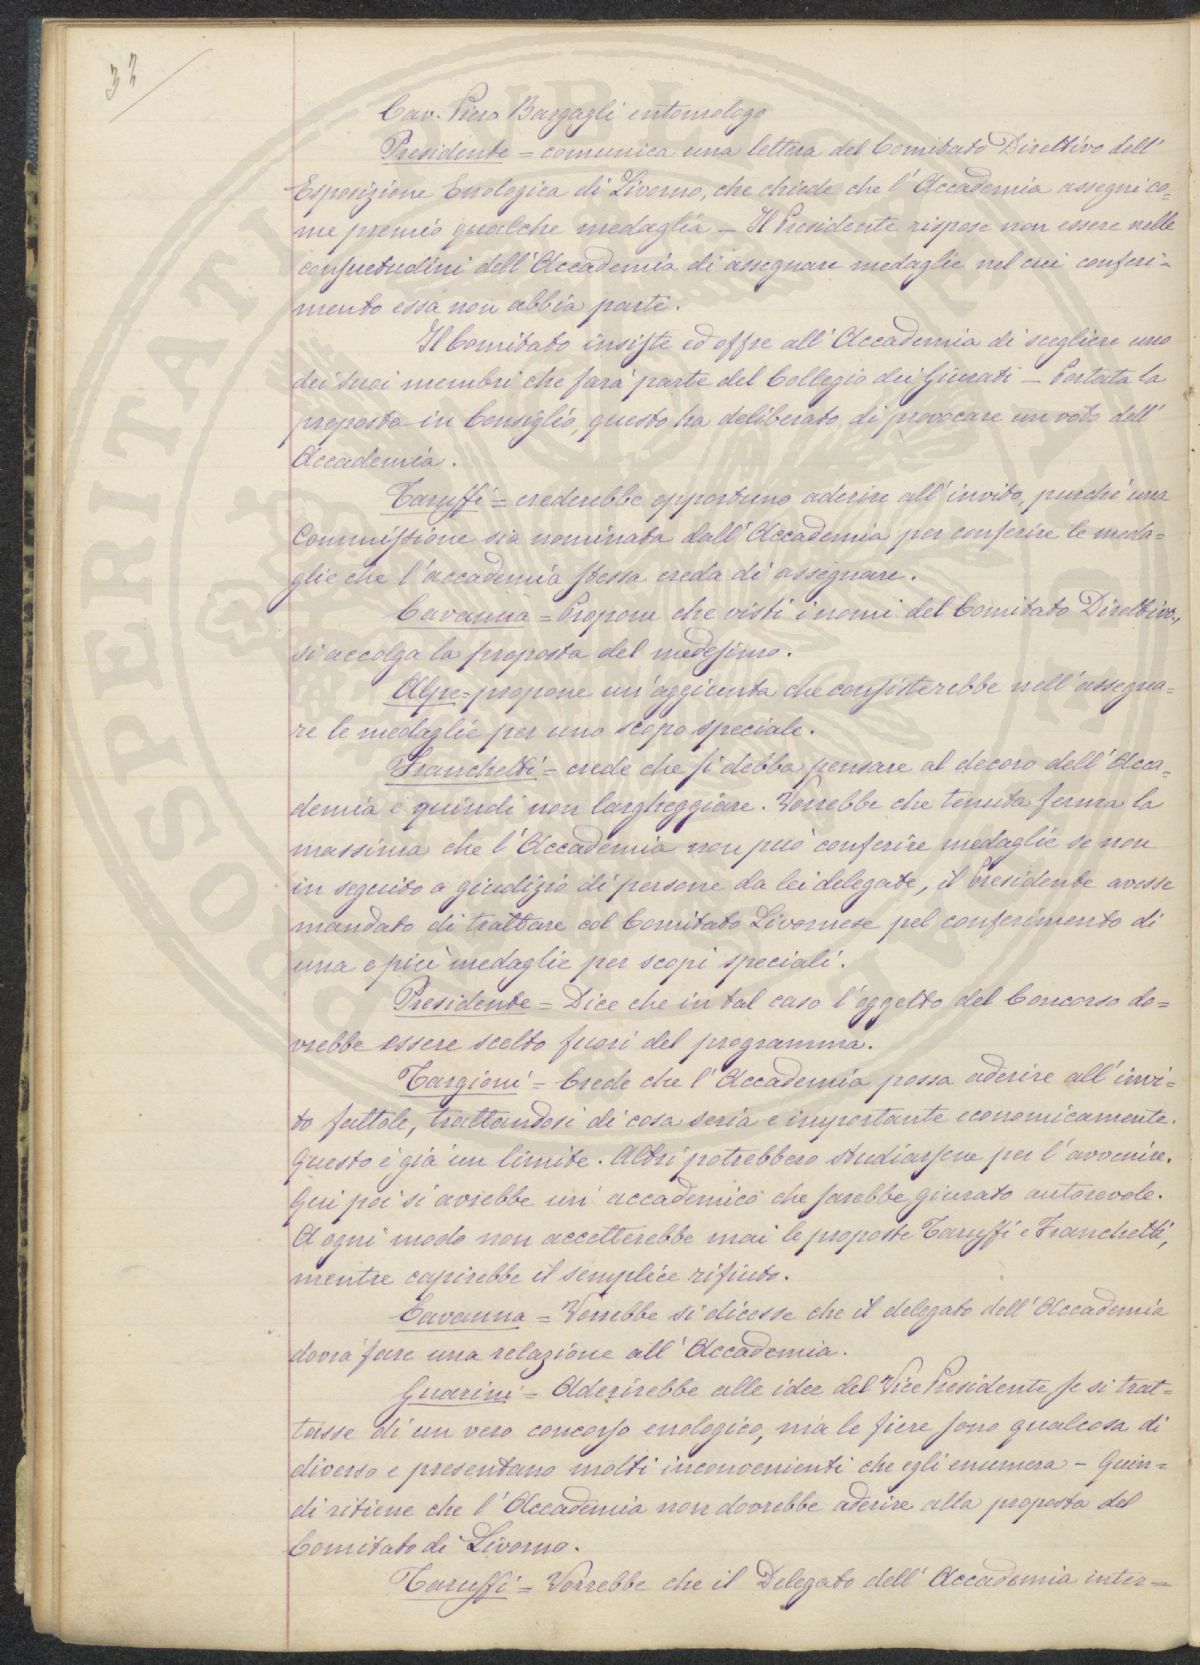 32
Cav. Piero Bargagli entomologo
Presidente = comunica una lettera del Comitato Direttivo dell'
Esposizione Enologica di Livorno, che chiede che l'Accademia assegni co=
me premio qualche medaglia – Il Presidente rispose non essere nelle
consuetudini dell'Accademia di assegnare medaglie nel cui conferi-
mento essa non abbia parte.
Il Comitato insiste ed offre all'Accademia di scegliere uno
dei suoi membri che farà parte del Collegio dei Giurati – Portata la
proposta in Consiglio, questo ha deliberato di provocare un voto dell'
Accademia.
Taruffi = crederebbe opportuno aderire all'invito, purchè una
Commissione sia nominata dall'Accademia per conferire le meda=
glie che l'accademia stessa creda di assegnare.
Cavanna = Propone che visti i nomi del Comitato Direttivo,
si accolga la proposta del medesimo.
Alpe = propone un'aggiunta che consisterebbe nell'assegna=
re le medaglie per uno scopo speciale.
Franchetti = crede che si debba pensare al decoro dell'Acca=
demia e quindi non largheggiare. Vorrebbe che tenuta ferma la
massima che l'Accademia non può conferire medaglie se non
in seguito a giudizio di persone da lei delegate, il Presidente avesse
mandato di trattare col Comitato Livornese pel conferimento di
una o più medaglie per scopi speciali.
Presidente = Dice che in tal caso l'oggetto del Concorso do=
vrebbe essere scelto fuori del programma.
Targioni = Crede che l'Accademia possa aderire all'invi=
to fattole, trattandosi di cosa seria e importante economicamente.
Questo è già un limite. Altri potrebbero studiarsene per l'avvenire.
Qui poi si avrebbe un accademico che sarebbe giurato autorevole.
A ogni modo non accetterebbe mai le proposte Taruffi e Franchetti,
mentre capirebbe il semplice rifiuto.
Cavanna = Vorrebbe si dicesse che il delegato dell'Accademia
dovrà fare una relazione all'Accademia.
Guarini = Aderirebbe alle idee del Vice Presidente se si trat=
tasse di un vero concorso enologico, ma le fiere sono qualcosa di
diverso e presentano molti inconvenienti che egli enumera – Quin=
di ritiene che l'Accademia non dovrebbe aderire alla proposta del
Comitato di Livorno.
Taruffi = Vorrebbe che il Delegato dell'Accademia inter=
PROSPERITATI PUBLICAE AUGENDAE